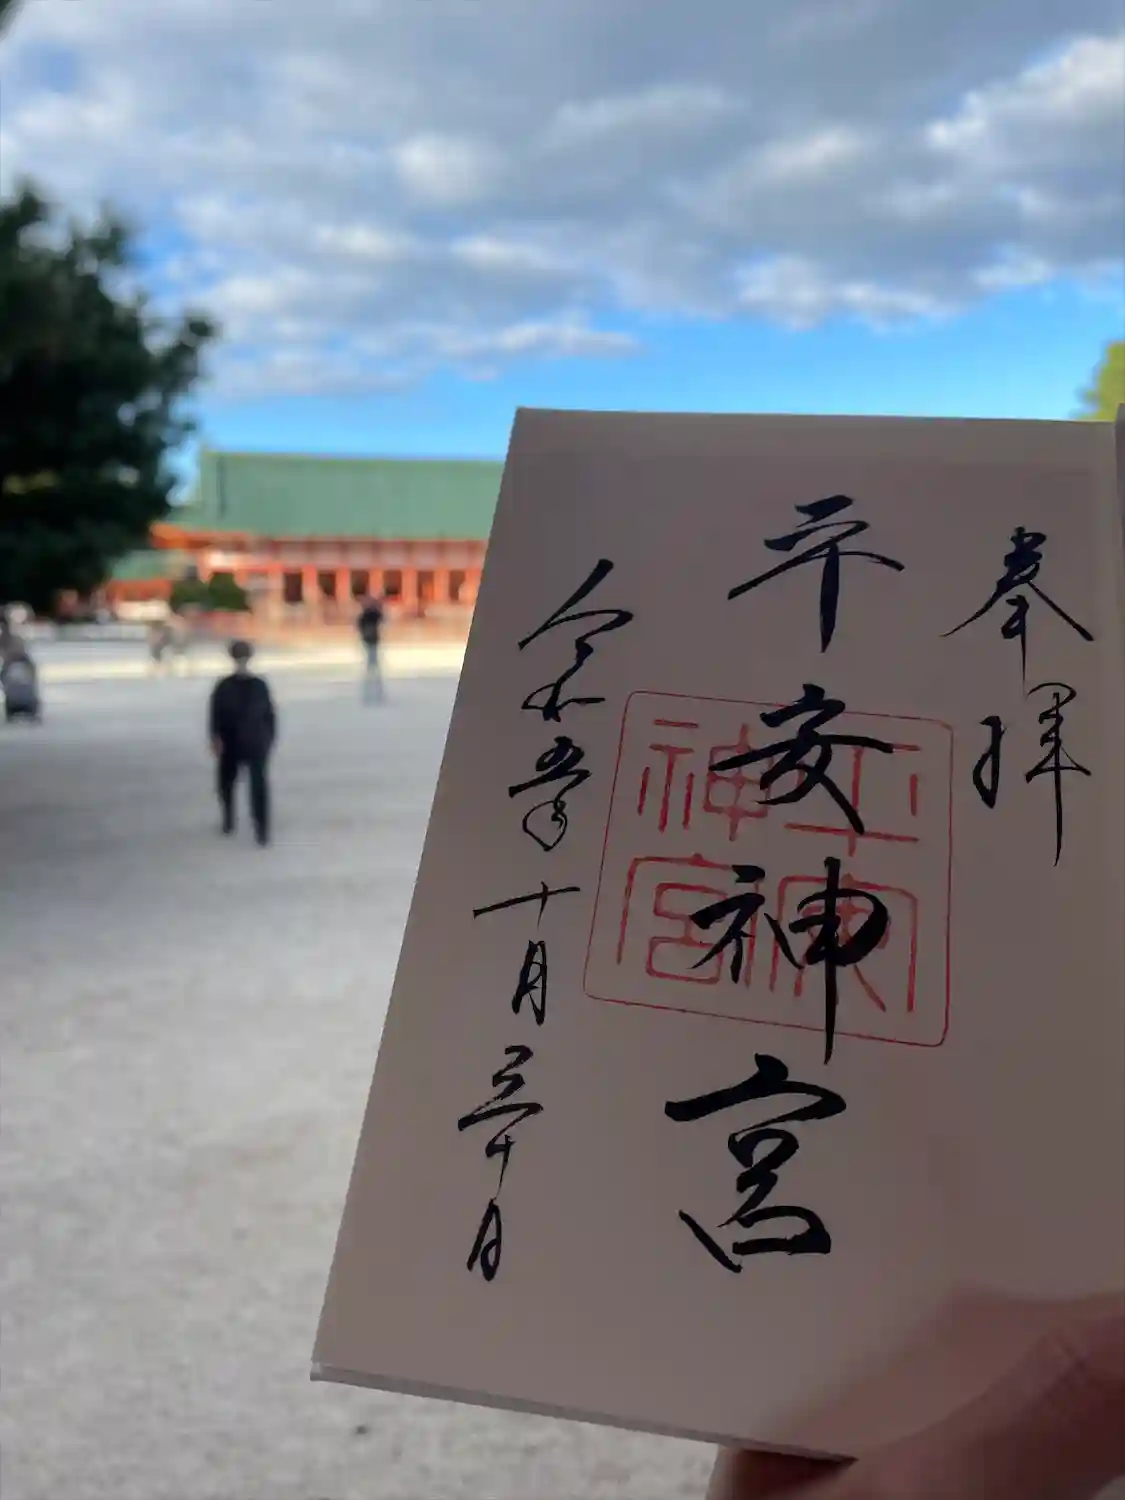 奉拝
平安神宮
平安神宮
令和五年十月三十日